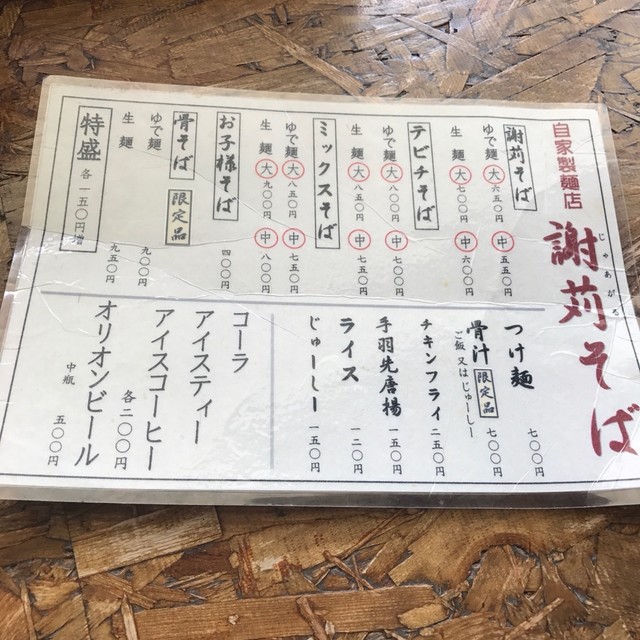 自家製麺店
謝苅そば
じゃあがる
謝苅そば
ゆで麺 大 六五〇円 中 五五〇円
生麺 大 七〇〇円 中 六〇〇円
テビチそば
ゆで麺 大 八〇〇円 中 七〇〇円
生麺 大 八五〇円 中 七五〇円
ミックスそば
ゆで麺 大 八五〇円 中 七五〇円
生麺 大 九〇〇円 中 八〇〇円
お子様そば 四〇〇円
骨そば 限定品
ゆで麺 九〇〇円
生麺 九五〇円
特盛 各一五〇円増
つけ麺 七〇〇円
骨汁 限定品 七〇〇円
ご飯又はじゅーしー
チキンフライ 二五〇円
手羽先唐揚 一五〇円
ライス 一二〇円
じゅーしー 一五〇円
コーラ
アイスティー
アイスコーヒー 各二〇〇円
オリオンビール 中瓶 五〇〇円